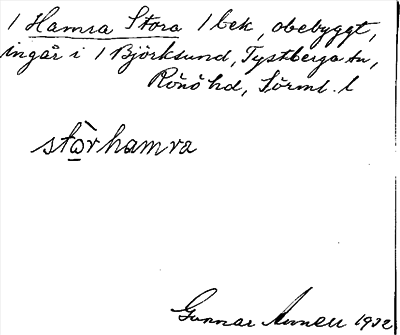 1 Hamra Stora 1 bek, obebyggt,
ingår i 1 Björksund, Tystberga sn,
Rönö hd, Sörml. l
stòrhamra
Gunnar Annell 1932